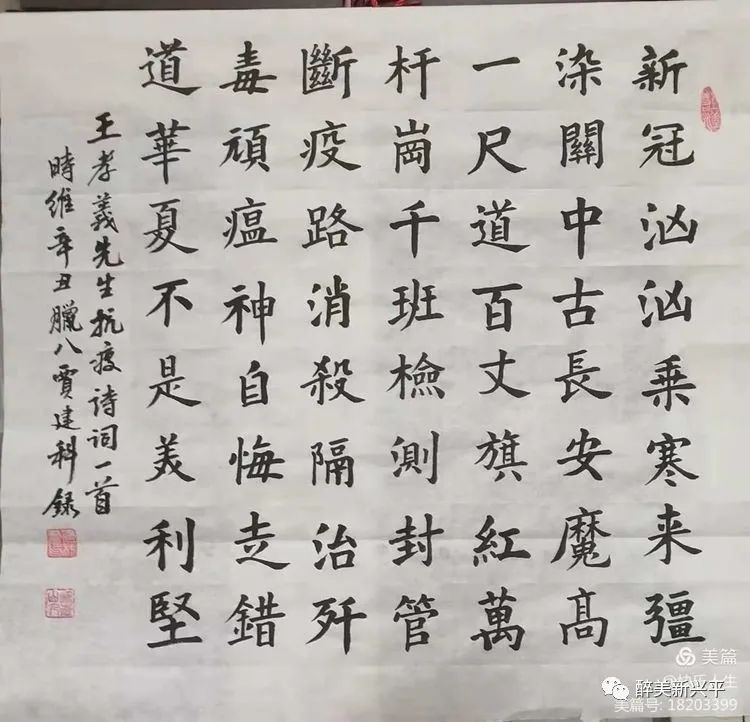 新冠汹汹乘寒来彊
染關中古長安魔髙
一尺道百丈旗紅萬
杆崗千班檢測封管
斷疫路消殺隔治歼
毒頑瘟神自悔走錯
道華夏不是美利堅
王孝義先生抗疫诗词一首
時維辛丑臘八賈建科録
美篇
醉美新兴平
美篇号: 18203399